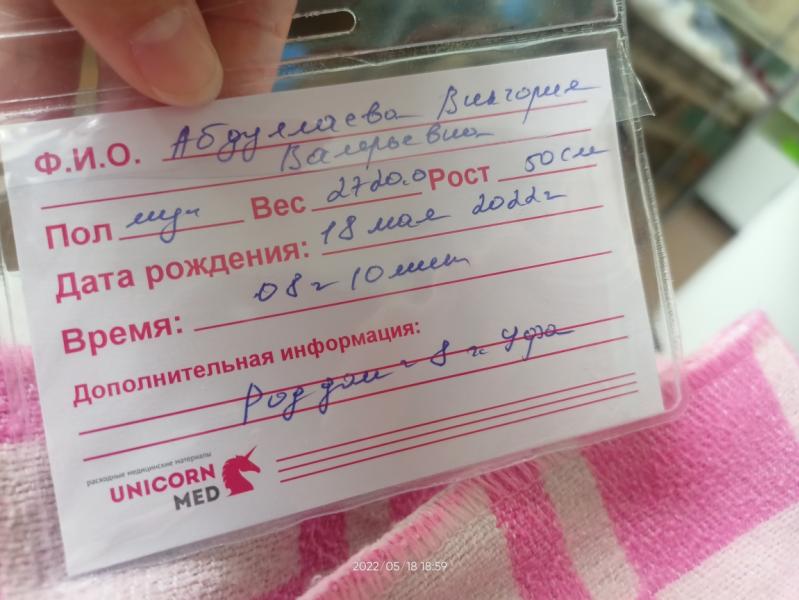 Ф.И.О. Абдуллаева Виктория
Валерьевна
Пол муж Вес 2720.0 Рост 50 см
Дата рождения: 18 мая 2022 г
Время: 08 ч 10 мин
Дополнительная информация:
Роддом - 8 г. Уфа
расходные медицинские материалы
UNICORN
MED
2022/05/18 18:59